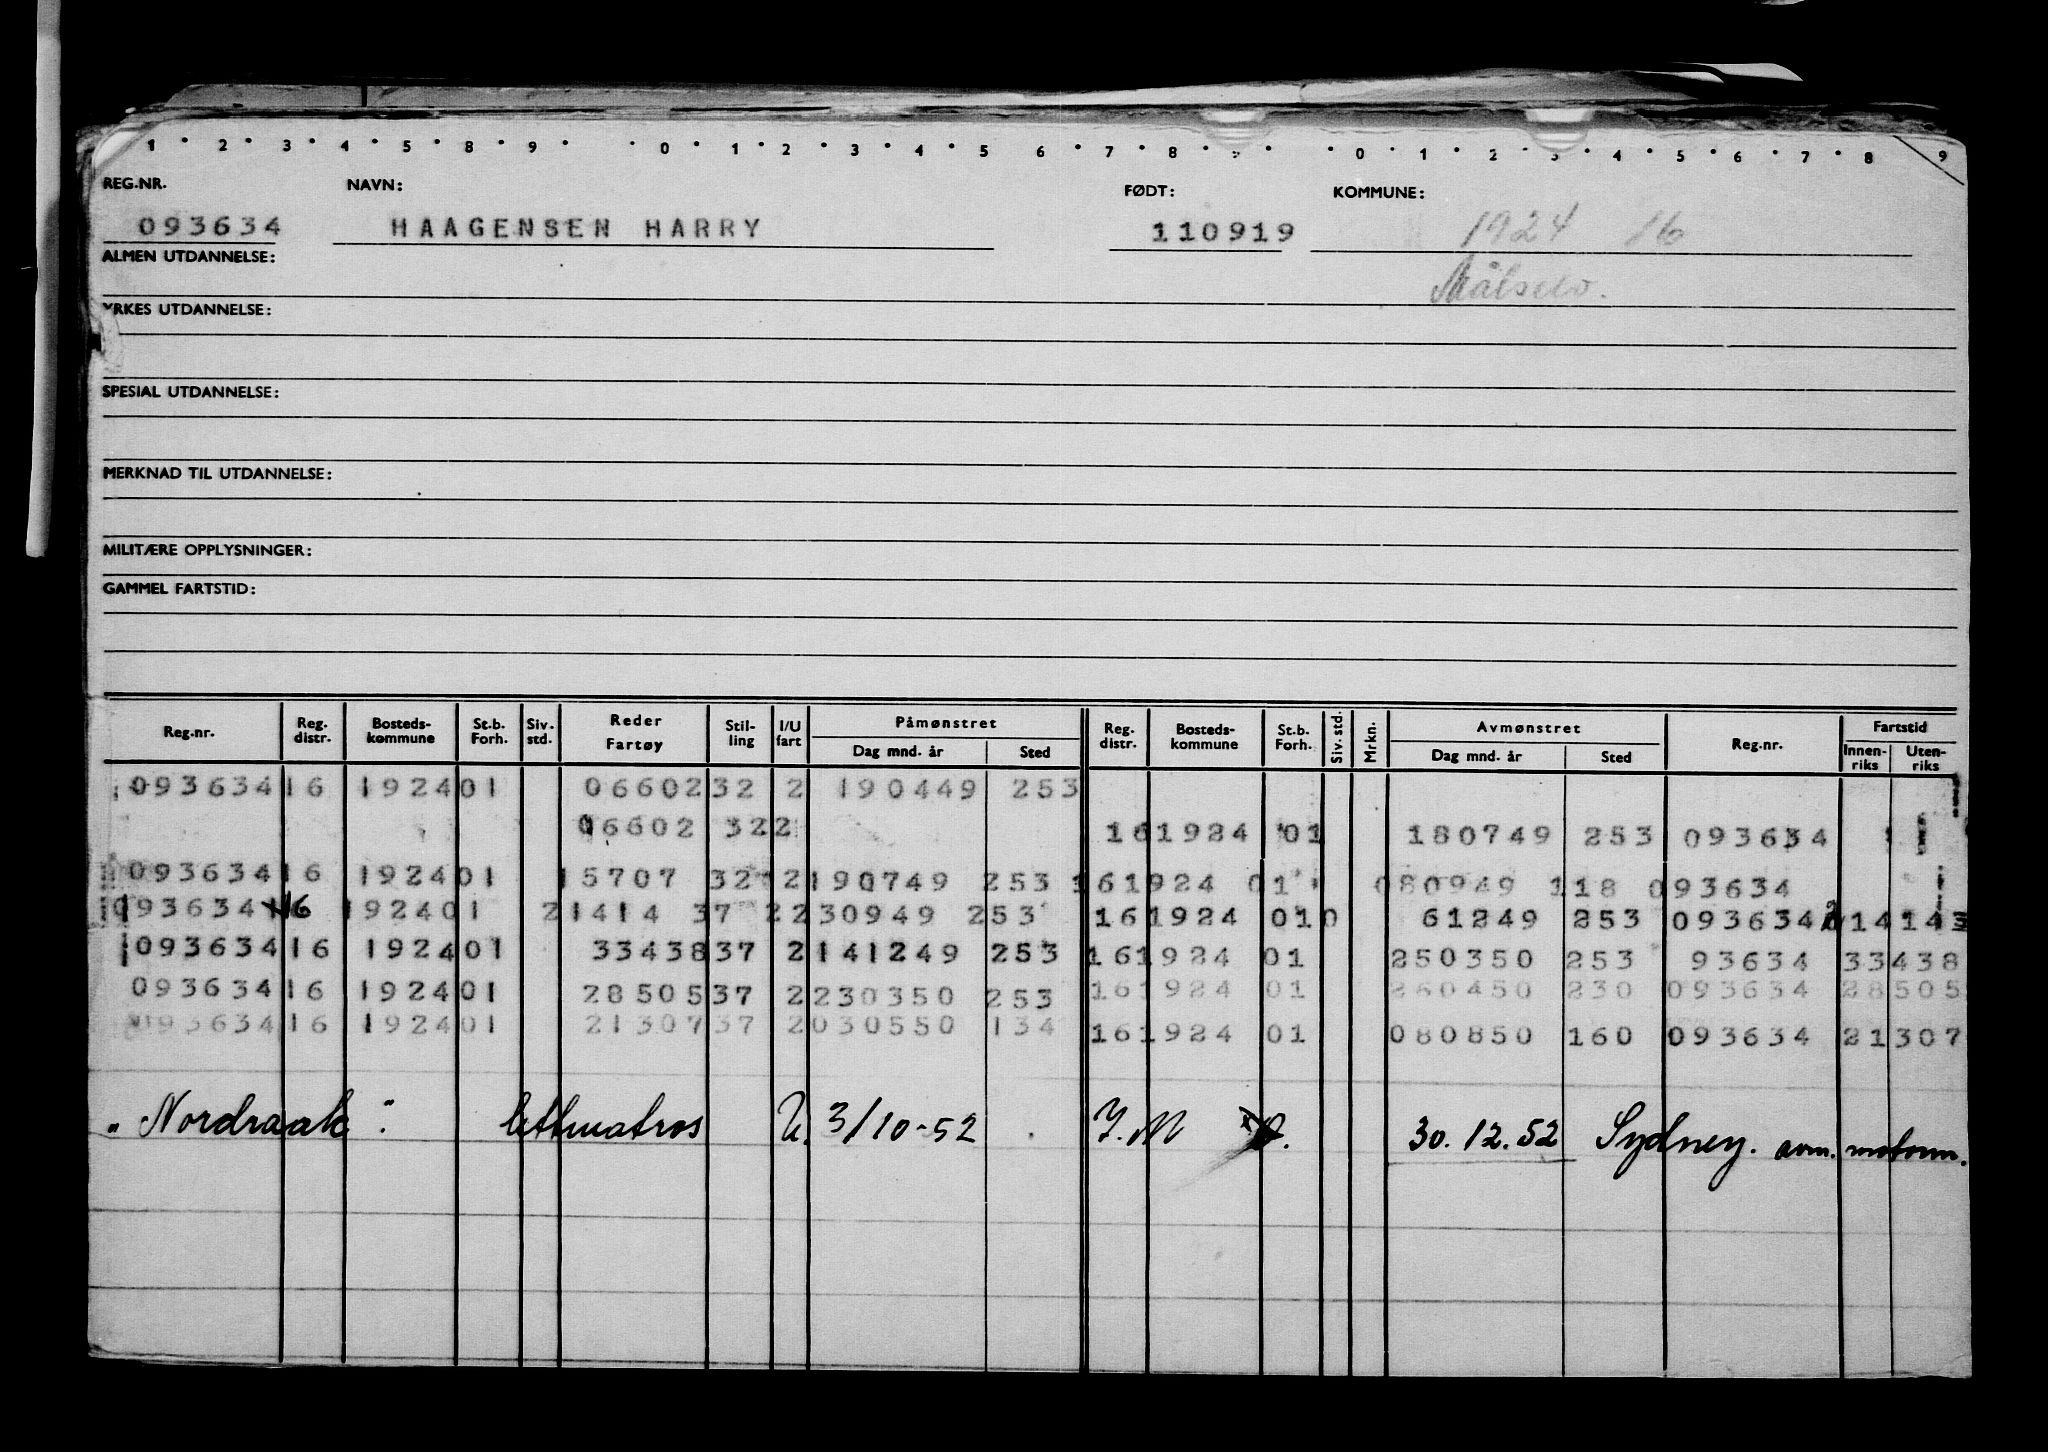 1 2 3 4 5 8 9 0 1 2 3 4 5 6 7 8 9 0 1 2 3 4 5 6 7 8 9
REG.NR. NAVN: FØDT: KOMMUNE:
093634 HAAGENSEN HARRY 110919 1924 16
ALMEN UTDANNELSE: Målselv.
YRKES UTDANNELSE:
SPESIAL UTDANNELSE:
MERKNAD TIL UTDANNELSE:
MILITÆRE OPPLYSNINGER:
GAMMEL FARTSTID:
Reg.nr. Reg. distr. Bosteds-kommune St.b. Forh. Siv. std. Reder Fartøy Stil-ling I/U fart Påmønstret Dag mnd. år Sted Reg. distr. Bosteds-kommune St.b. Forh. Siv. std. Mrkn. Avmønstret Dag mnd. år Sted Reg.nr. Fartstid Innen-riks Uten-riks
093634 16 1924 01 06602 32 2 190449 253
06602 32 2 16 1924 01 180749 253 093634
093634 16 1924 01 15707 32 2 190749 253 16 1924 01 080949 118 093634
093634 16 1924 01 21414 37 2 230949 253 16 1924 01 0 61249 253 093634 14143
093634 16 1924 01 33438 37 2 141249 253 16 1924 01 250350 253 93634 33438
093634 16 1924 01 28505 37 2 230350 253 16 1924 01 280450 230 093634 28505
093634 16 1924 01 21307 37 2 030550 134 16 1924 01 080850 160 093634 21307
"Nordraak". lettmatros U. 3/10-52 30.12.52 Sydney. avm.